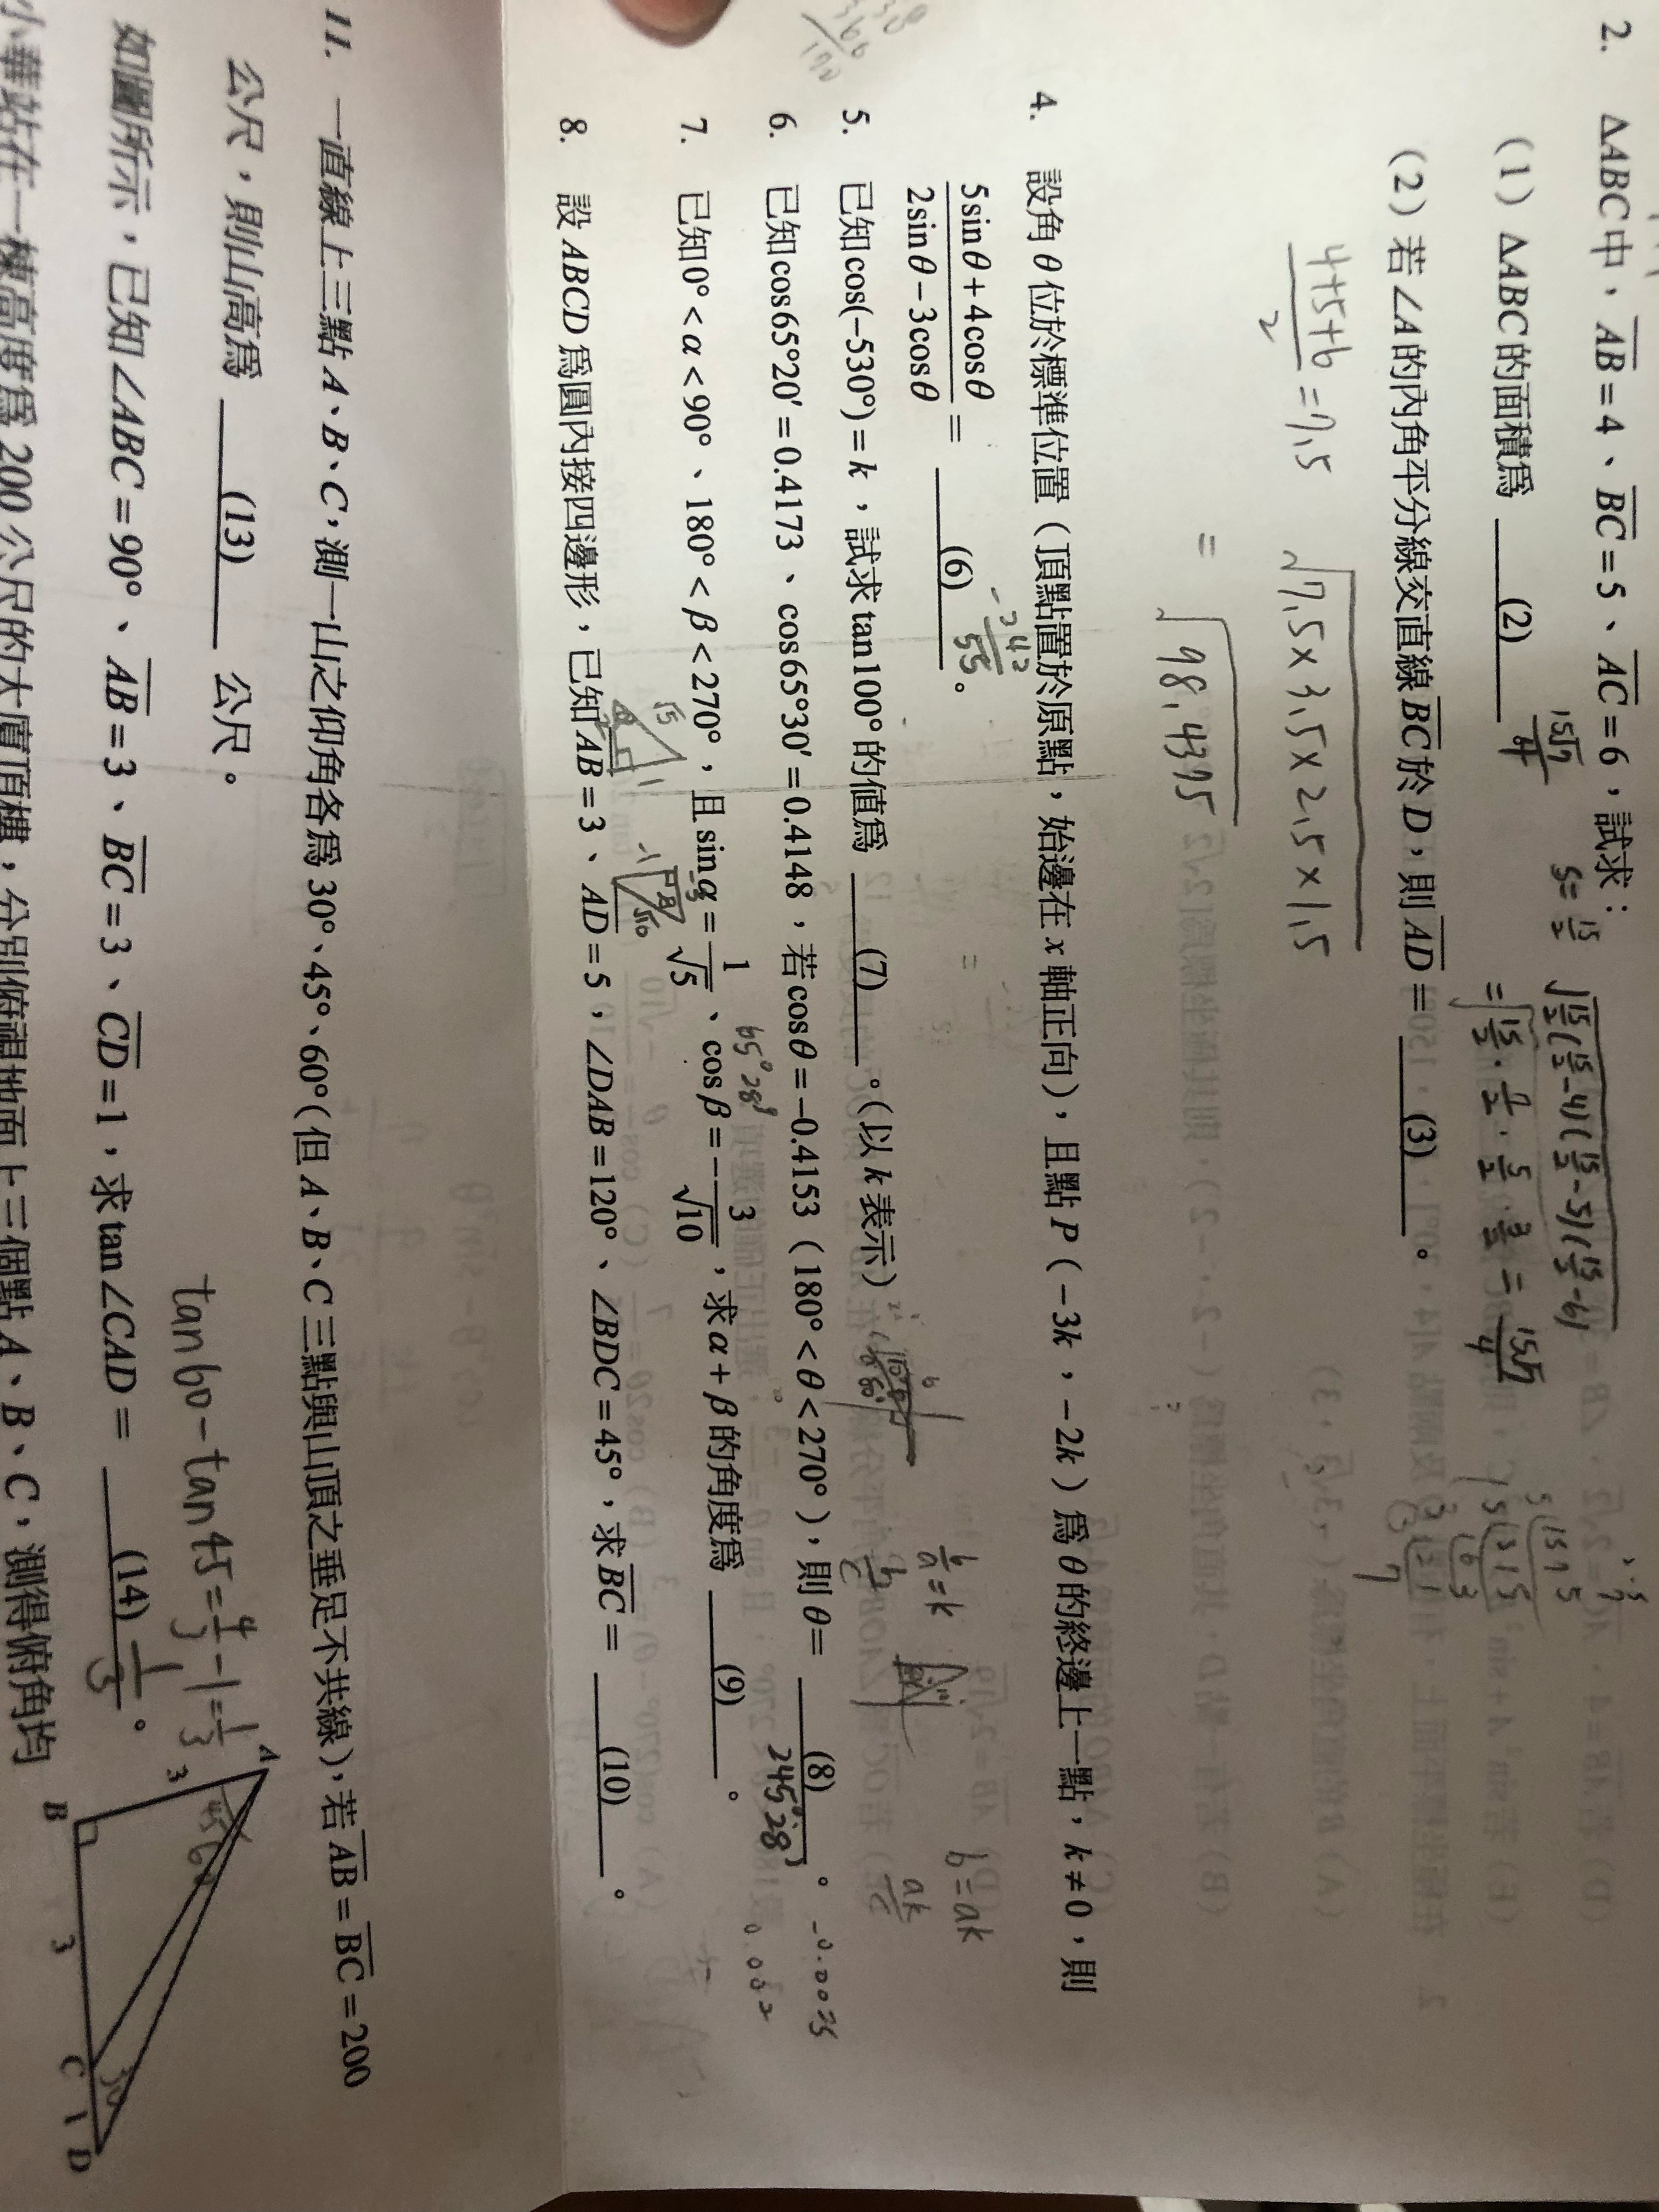 2. ΔABC中，AB=4、BC=5、AC=6，試求：
(1) ΔABC的面積為 (2) 15√7/4
S=15/2
√(15/2(15/2-4)(15/2-5)(15/2-6))
=√(15/2·7/2·5/2·3/2) = 15√7/4
(2) 若∠A的內角平分線交直線BC於D，則AD= (3) 。
(4+5+6)/2=7.5
√(7.5×3.5×2.5×1.5)
= √98.4375
4. 設角θ位於標準位置（頂點置於原點，始邊在x軸正向），且點P（-3k，-2k）為θ的終邊上一點，k≠0，則
(5sinθ+4cosθ)/(2sinθ-3cosθ)= (6) 。
5. 已知cos(-530°)=k，試求tan100°的值為 (7) 。（以k表示）
b/a=k
b=ak
6. 已知cos65°20′=0.4173、cos65°30′=0.4148，若cosθ=-0.4153（180°<θ<270°），則θ= (8) 245°28' 。
65°28'
7. 已知0°<α<90°、180°<β<270°，且sinα=1/√5、cosβ=-3/√10，求α+β的角度為 (9) 。
8. 設ABCD為圓內接四邊形，已知AB=3、AD=5，∠DAB=120°、∠BDC=45°，求BC= (10) 。
11. 一直線上三點A、B、C，測一山之仰角各為30°、45°、60°（但A、B、C三點與山頂之垂足不共線），若AB=BC=200
公尺，則山高為 (13) 公尺。
tan60-tan45=4/3-1=1/3
如圖所示，已知∠ABC=90°、AB=3、BC=3、CD=1，求tan∠CAD= (14) 。
A
3
B
3
C
1
D
小華站在一棟高度為200公尺的大廈頂樓，分別俯視地面上三個點A、B、C，測得俯角均